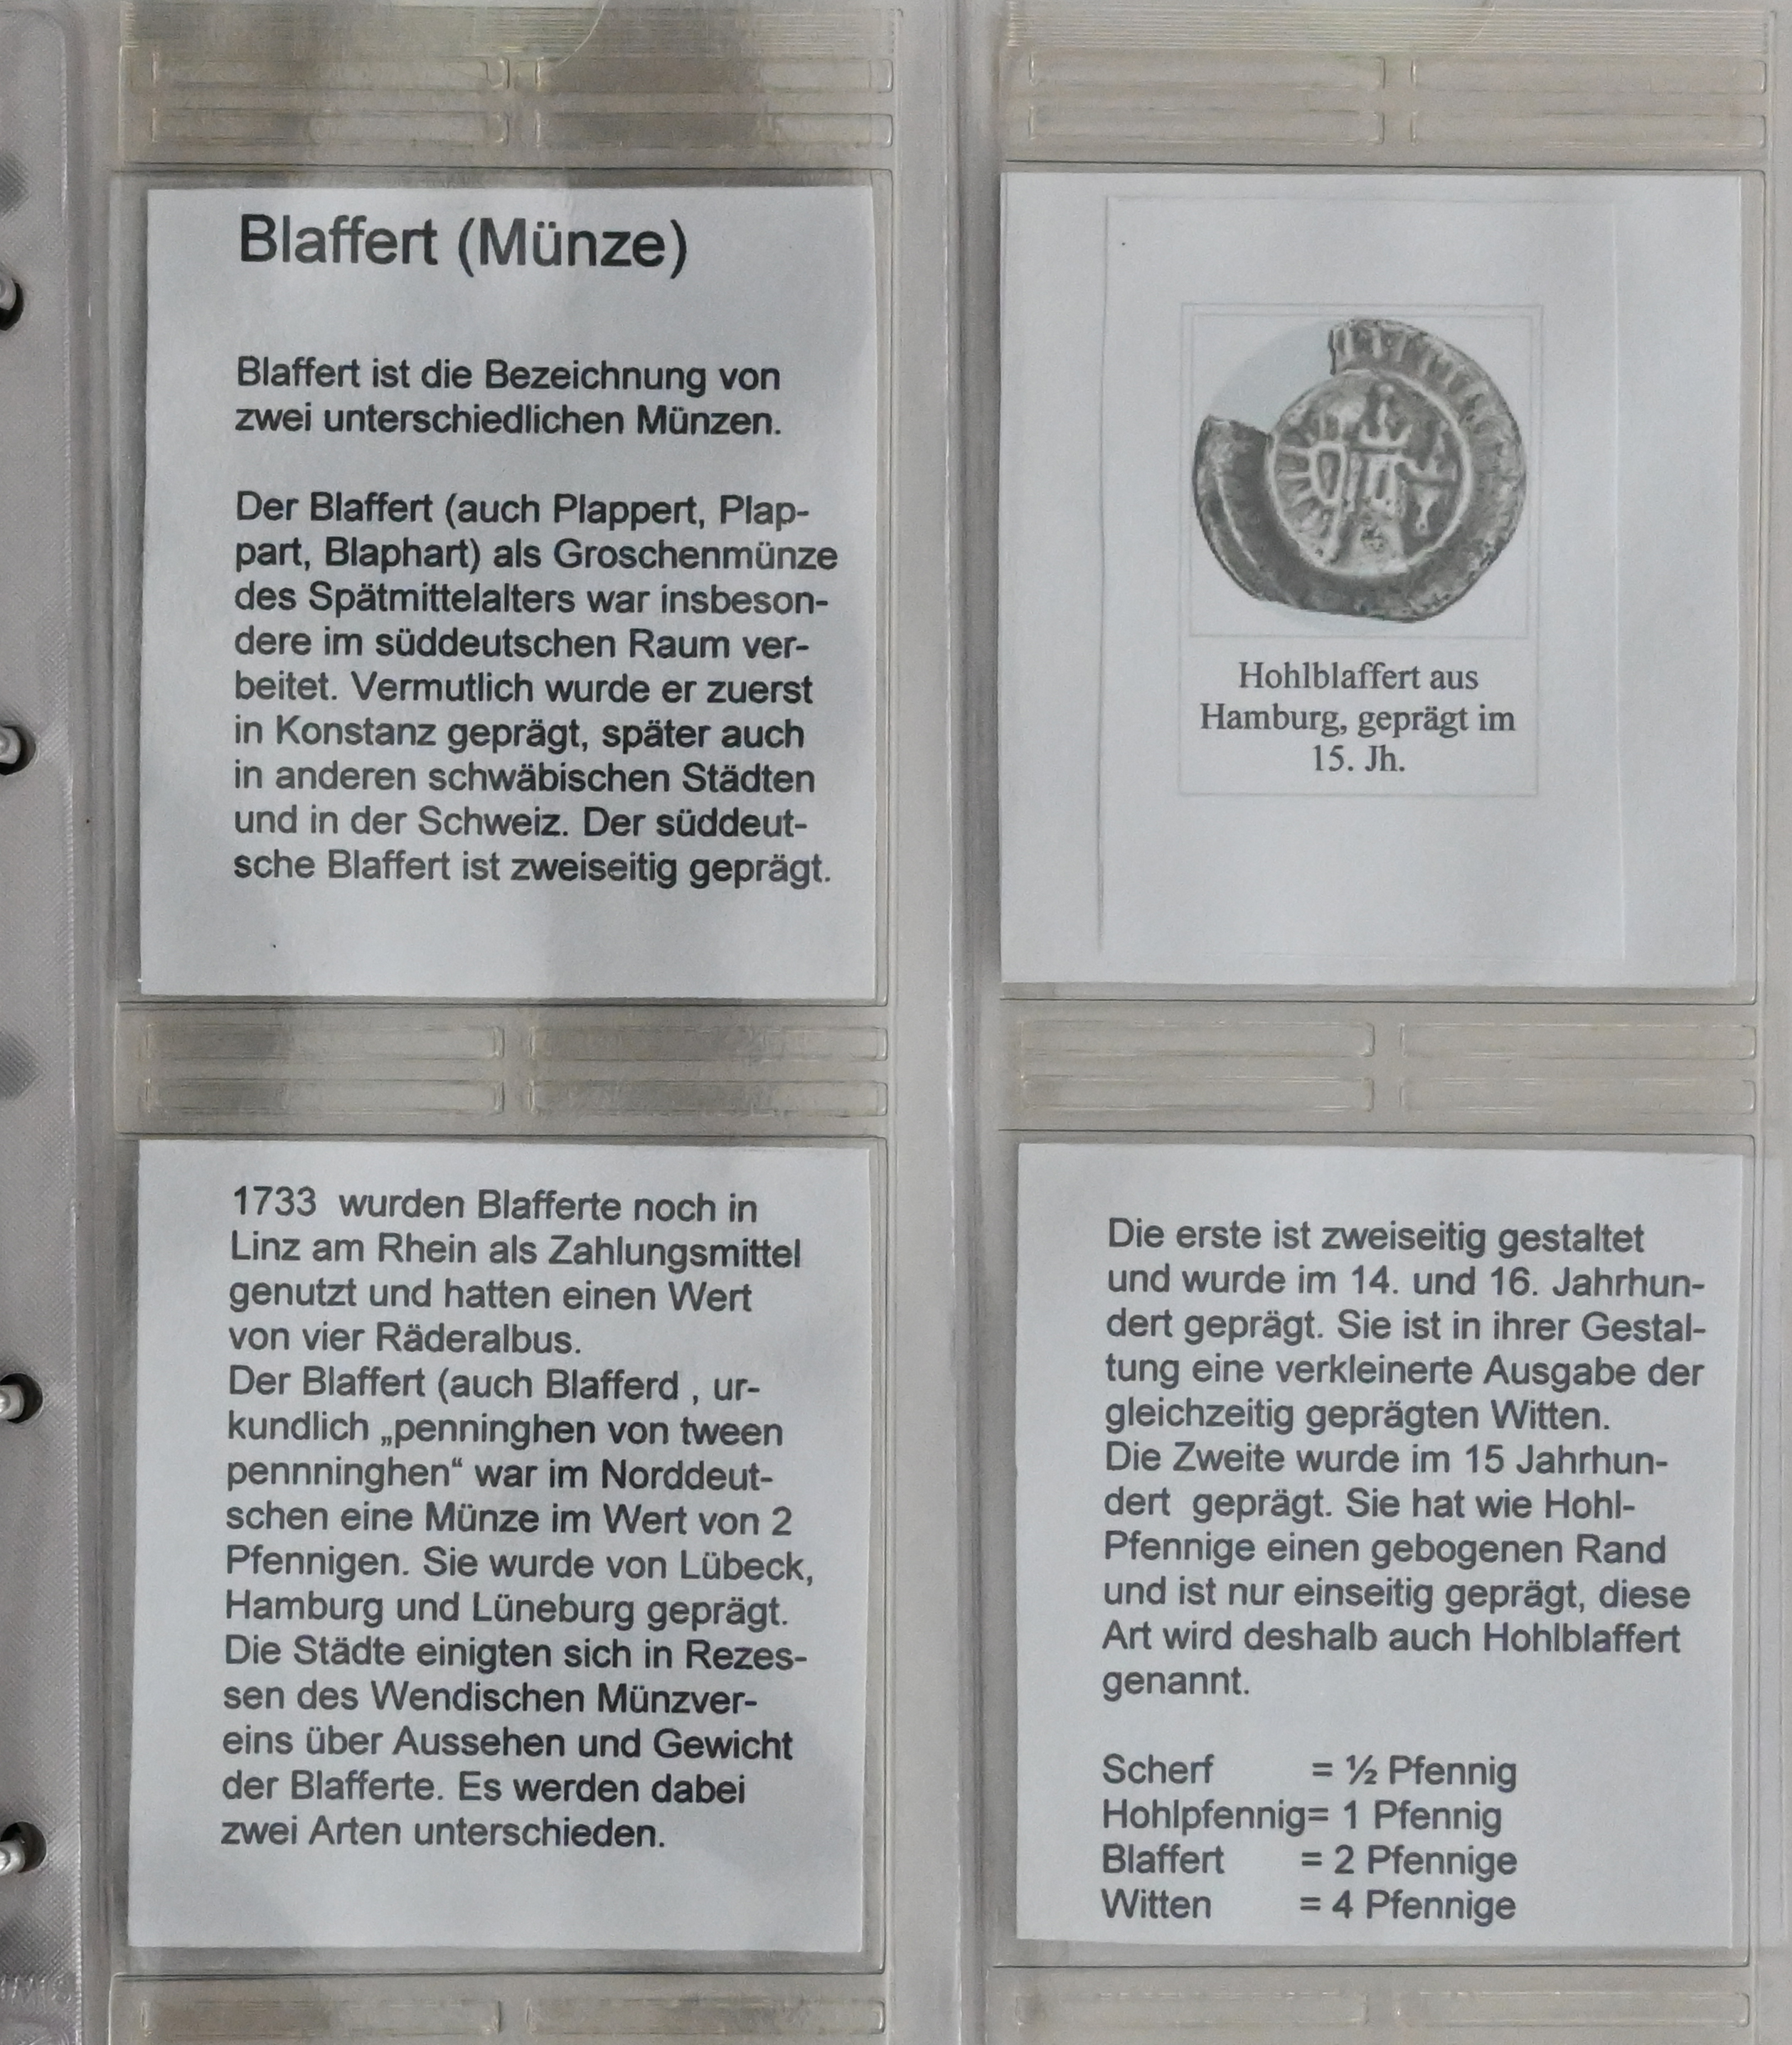 Blaffert (Münze)
Blaffert ist die Bezeichnung von
zwei unterschiedlichen Münzen.
Der Blaffert (auch Plappert, Plap-
part, Blaphart) als Groschenmünze
des Spätmittelalters war insbeson-
dere im süddeutschen Raum ver-
beitet. Vermutlich wurde er zuerst
in Konstanz geprägt, später auch
in anderen schwäbischen Städten
und in der Schweiz. Der süddeut-
sche Blaffert ist zweiseitig geprägt.
Hohlblaffert aus
Hamburg, geprägt im
15. Jh.
1733 wurden Blafferte noch in
Linz am Rhein als Zahlungsmittel
genutzt und hatten einen Wert
von vier Räderalbus.
Der Blaffert (auch Blafferd , ur-
kundlich „penninghen von tween
pennninghen“ war im Norddeut-
schen eine Münze im Wert von 2
Pfennigen. Sie wurde von Lübeck,
Hamburg und Lüneburg geprägt.
Die Städte einigten sich in Rezes-
sen des Wendischen Münzver-
eins über Aussehen und Gewicht
der Blafferte. Es werden dabei
zwei Arten unterschieden.
Die erste ist zweiseitig gestaltet
und wurde im 14. und 16. Jahrhun-
dert geprägt. Sie ist in ihrer Gestal-
tung eine verkleinerte Ausgabe der
gleichzeitig geprägten Witten.
Die Zweite wurde im 15 Jahrhun-
dert geprägt. Sie hat wie Hohl-
Pfennige einen gebogenen Rand
und ist nur einseitig geprägt, diese
Art wird deshalb auch Hohlblaffert
genannt.
Scherf = ½ Pfennig
Hohlpfennig= 1 Pfennig
Blaffert = 2 Pfennige
Witten = 4 Pfennige